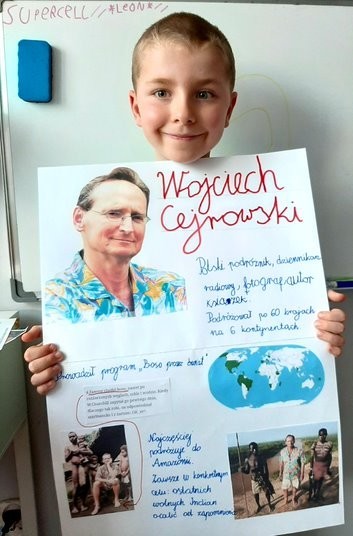 SUPERCELL//*LEON*//
Wojciech
Cejrowski
Polski podróżnik, dziennikarz
radiowy, fotograf, autor
książek.
Podróżował po 60 krajach
na 6 kontynentach
Prowadził program „Boso przez świat"
Najczęściej
podróżuje do
Amazonii.
Zawsze w konkretnym
celu: ostatnich
wolnych Indian
ocalić od zapomnienia